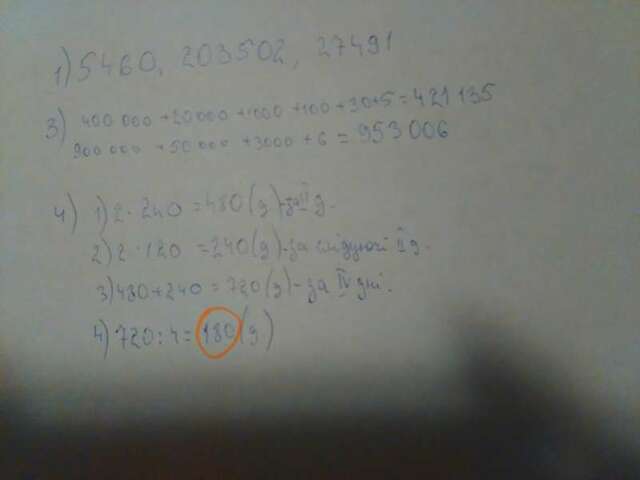 1) 5460, 203502, 27491
3) 400 000 + 20000 + 1000 + 100 + 30+5 = 421 135
900 000 + 50 000 + 3000 + 6 = 953 006
4) 1) 2 · 240 = 480 (д) - за II д.
2) 2 · 120 = 240 (д) - за слідуючі II д.
3) 480 + 240 = 720 (д) - за IV дні.
4) 720 : 4 = 180 (д)